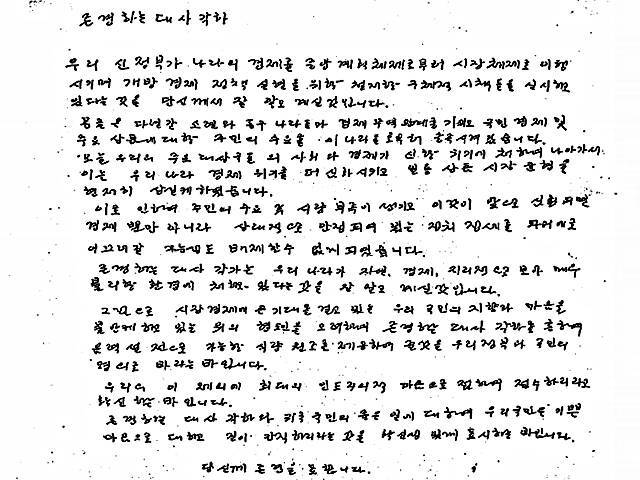 존경하는 대사 각하
우리 신정부가 나라의 경제를 중앙 계획체제로부터 시장체제로 이행
시키며 개방 경제 정책 실현을 위한 구체적 시책들을 실시하고
있다는것을 당신께서 잘 알고 계실것입니다.
몽골은 다년간 쏘련과 동구 나라들과 경제 무역 관계를 국민 경제 및
주요 상품에 대한 주민의 수요를 이 나라들로부터 충족시켜 왔습니다.
오늘 우리의 주요 대상국들의 사회와 경제가 처하여 나아가서
이는 우리 나라 경제 위기를 더 심화시키고 상품 시장 균형을
현저히 상실케하였습니다.
이로 인하여 주민의 수요 및 식량 부족이 생기고 이것이 앞으로 심화되면
경제 뿐만 아니라 상대적으로 안정되여 있는 정치 정세를 위기에로
이끄러갈 가능성도 배제할수 없게 되였습니다.
존경하는 대사 각하는 우리 나라가 자연, 경제, 지리적으로 보아 매우
불리한 환경에 처하고 있다는것을 잘 알고 계실것입니다.
그러므로 시장경제에 큰 기대를 걸고 있는 우리 국민의 지향과 마음을
있는 위의 현실을 고려하여 존경하는 대사 각하를 통하여
가능한 식량 원조를 제공하여 줄것을 우리 정부와 국민의
명의로 바라는바입니다.
우리의 이 제의에 최대의 인도주의적 마음으로 접하여 접수하리라고
확신하는 바입니다.
존경하는 대사 각하와 귀국 국민의 좋은 일에 대하여 우리 국민은 기쁜
마음으로 대하고 깊이 간직하리라는 것을 의심 없게 표시하는바입니다.
당신께 존경을 표합니다.